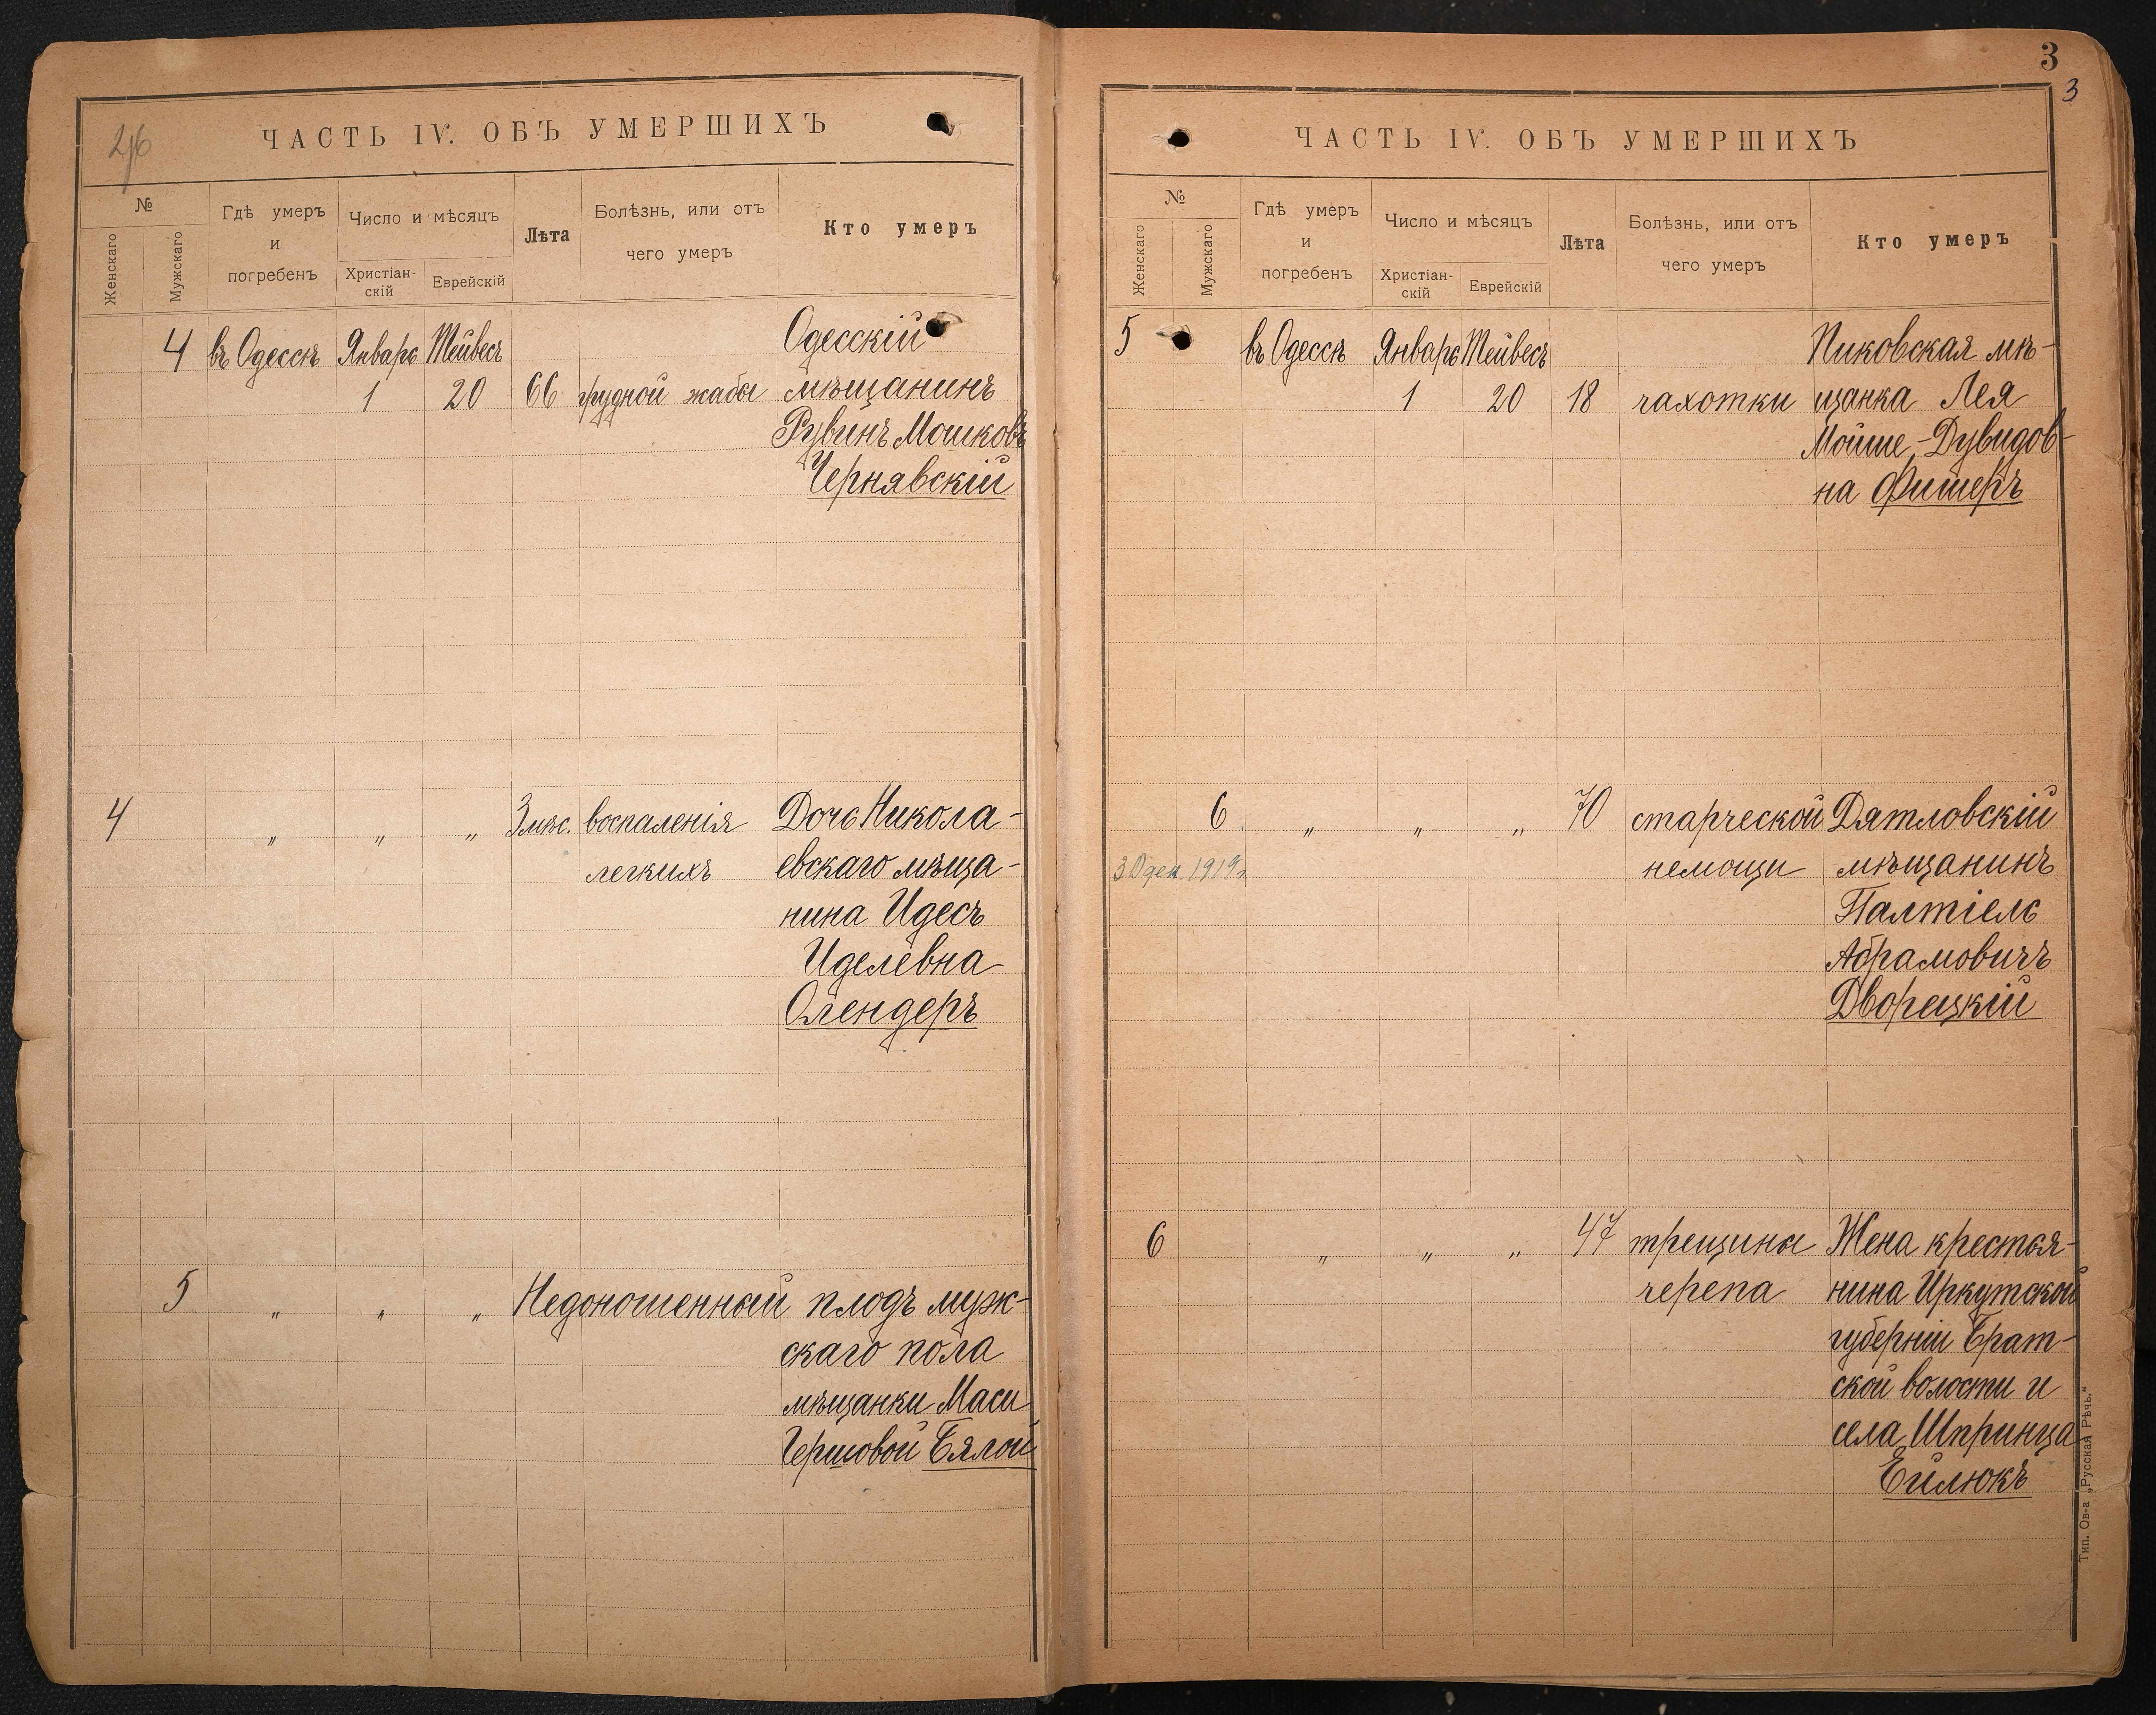 26
ЧАСТЬ IV. ОБЪ УМЕРШИХЪ
№
Женскаго
Мужскаго
Гдѣ умеръ
и
погребенъ
Число и мѣсяцъ
Христіан-
скій
Еврейскій
Лѣта
Болѣзнь, или отъ
чего умеръ
Кто умеръ
4 въ Одессѣ Январь Тейвесъ Одесскій
1 20 66 грудной жабы мѣщанинъ
Рувинъ Мошковъ
Чернявскій
4 „ „ „ 3 мѣс. воспаленія Дочь Никола-
легкихъ евскаго мѣща-
нина Идесъ
Иделевна
Олендеръ
5 „ „ „ Недоношенный плодъ муж-
скаго пола
мѣщанки Маси
Гершовой Бялой
3
3
ЧАСТЬ IV. ОБЪ УМЕРШИХЪ
№
Женскаго
Мужскаго
Гдѣ умеръ
и
погребенъ
Число и мѣсяцъ
Христіан-
скій
Еврейскій
Лѣта
Болѣзнь, или отъ
чего умеръ
Кто умеръ
5 въ Одессѣ Январь Тейвесъ Пиковская мѣ-
1 20 18 чахотки щанка Лея
Мойше-Дувидов-
на Фишеръ
6 „ „ „ 70 старческой Дятловскій
30 дек 1919г. немощи мѣщанинъ
Палтіель
Абрамовичъ
Дворецкій
6 „ „ „ 47 трещины Жена крестья-
черепа нина Иркутской
губерніи Брат-
ской волости и
села Шпринца
Ейлюкъ
Тип. Ов-а „Русская Рѣчь.“